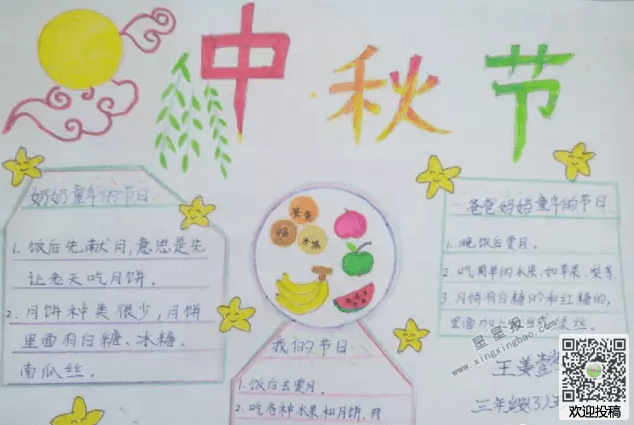 中秋节
奶奶童年的节日
1. 饭后先献月,意思是先
让老天吃月饼。
2. 月饼种类很少,月饼
里面有白糖、冰糖、
南瓜丝。
我们的节日
1. 饭后去赏月。
2. 吃各种水果和月饼,月
爸爸妈妈童年的节日
1. 晚饭后赏月。
2. 吃简单的水果,如苹果、梨等
3. 月饼有白糖的和红糖的,
里面
星星报
www.xingxingbao.com
三年级(3)
欢迎投稿